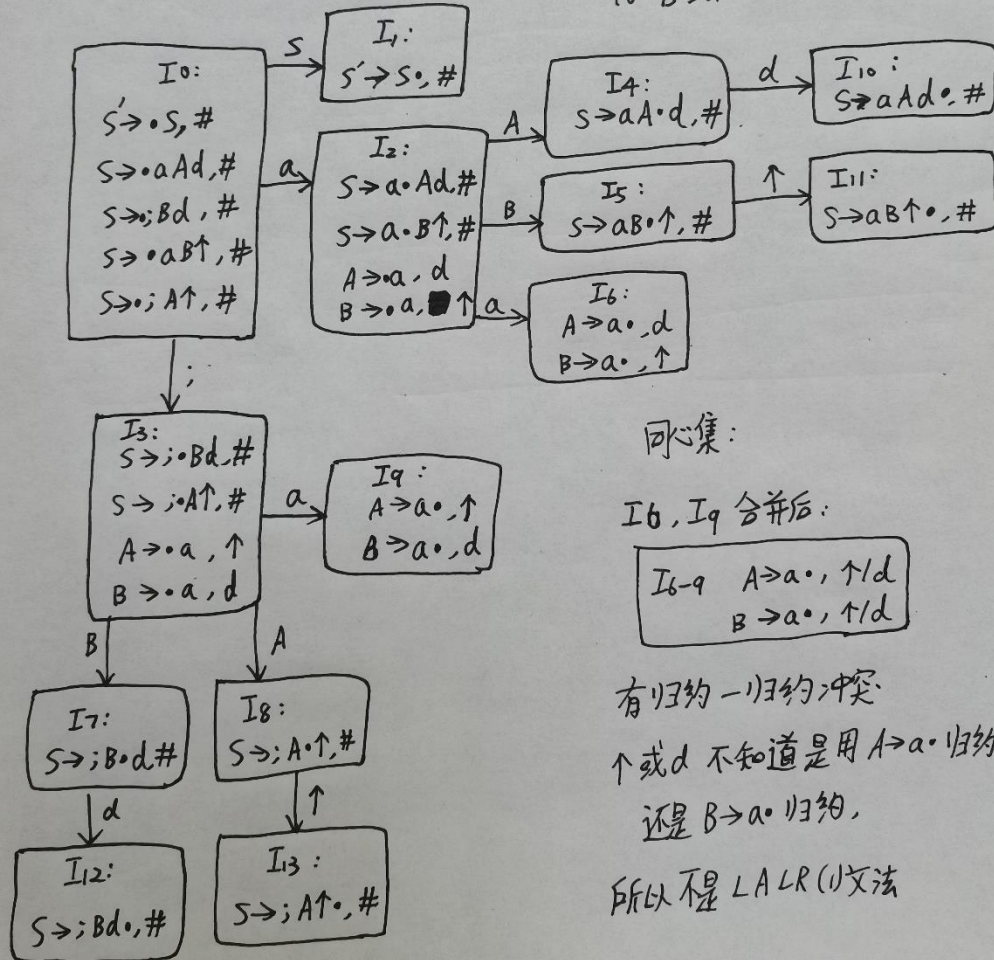 I0:
S'→•S,#
S→•aAd,#
S→•;Bd,#
S→•aB↑,#
S→•;A↑,#
S
I1:
S'→S•,#
a
I2:
S→a•Ad,#
S→a•B↑,#
A→•a,d
B→•a,↑
A
I4:
S→aA•d,#
d
I10:
S→aAd•,#
B
I5:
S→aB•↑,#
↑
I11:
S→aB↑•,#
a
I6:
A→a•,d
B→a•,↑
;
I3:
S→;•Bd,#
S→;•A↑,#
A→•a,↑
B→•a,d
a
I9:
A→a•,↑
B→a•,d
B
A
I7:
S→;B•d#
I8:
S→;A•↑,#
d
↑
I12:
S→;Bd•,#
I13:
S→;A↑•,#
同心集:
I6,I9合并后:
I6-9 A→a•,↑/d
B→a•,↑/d
有归约-归约冲突
↑或d 不知道是用A→a•归约
还是B→a•归约,
所以不是LALR(1)文法